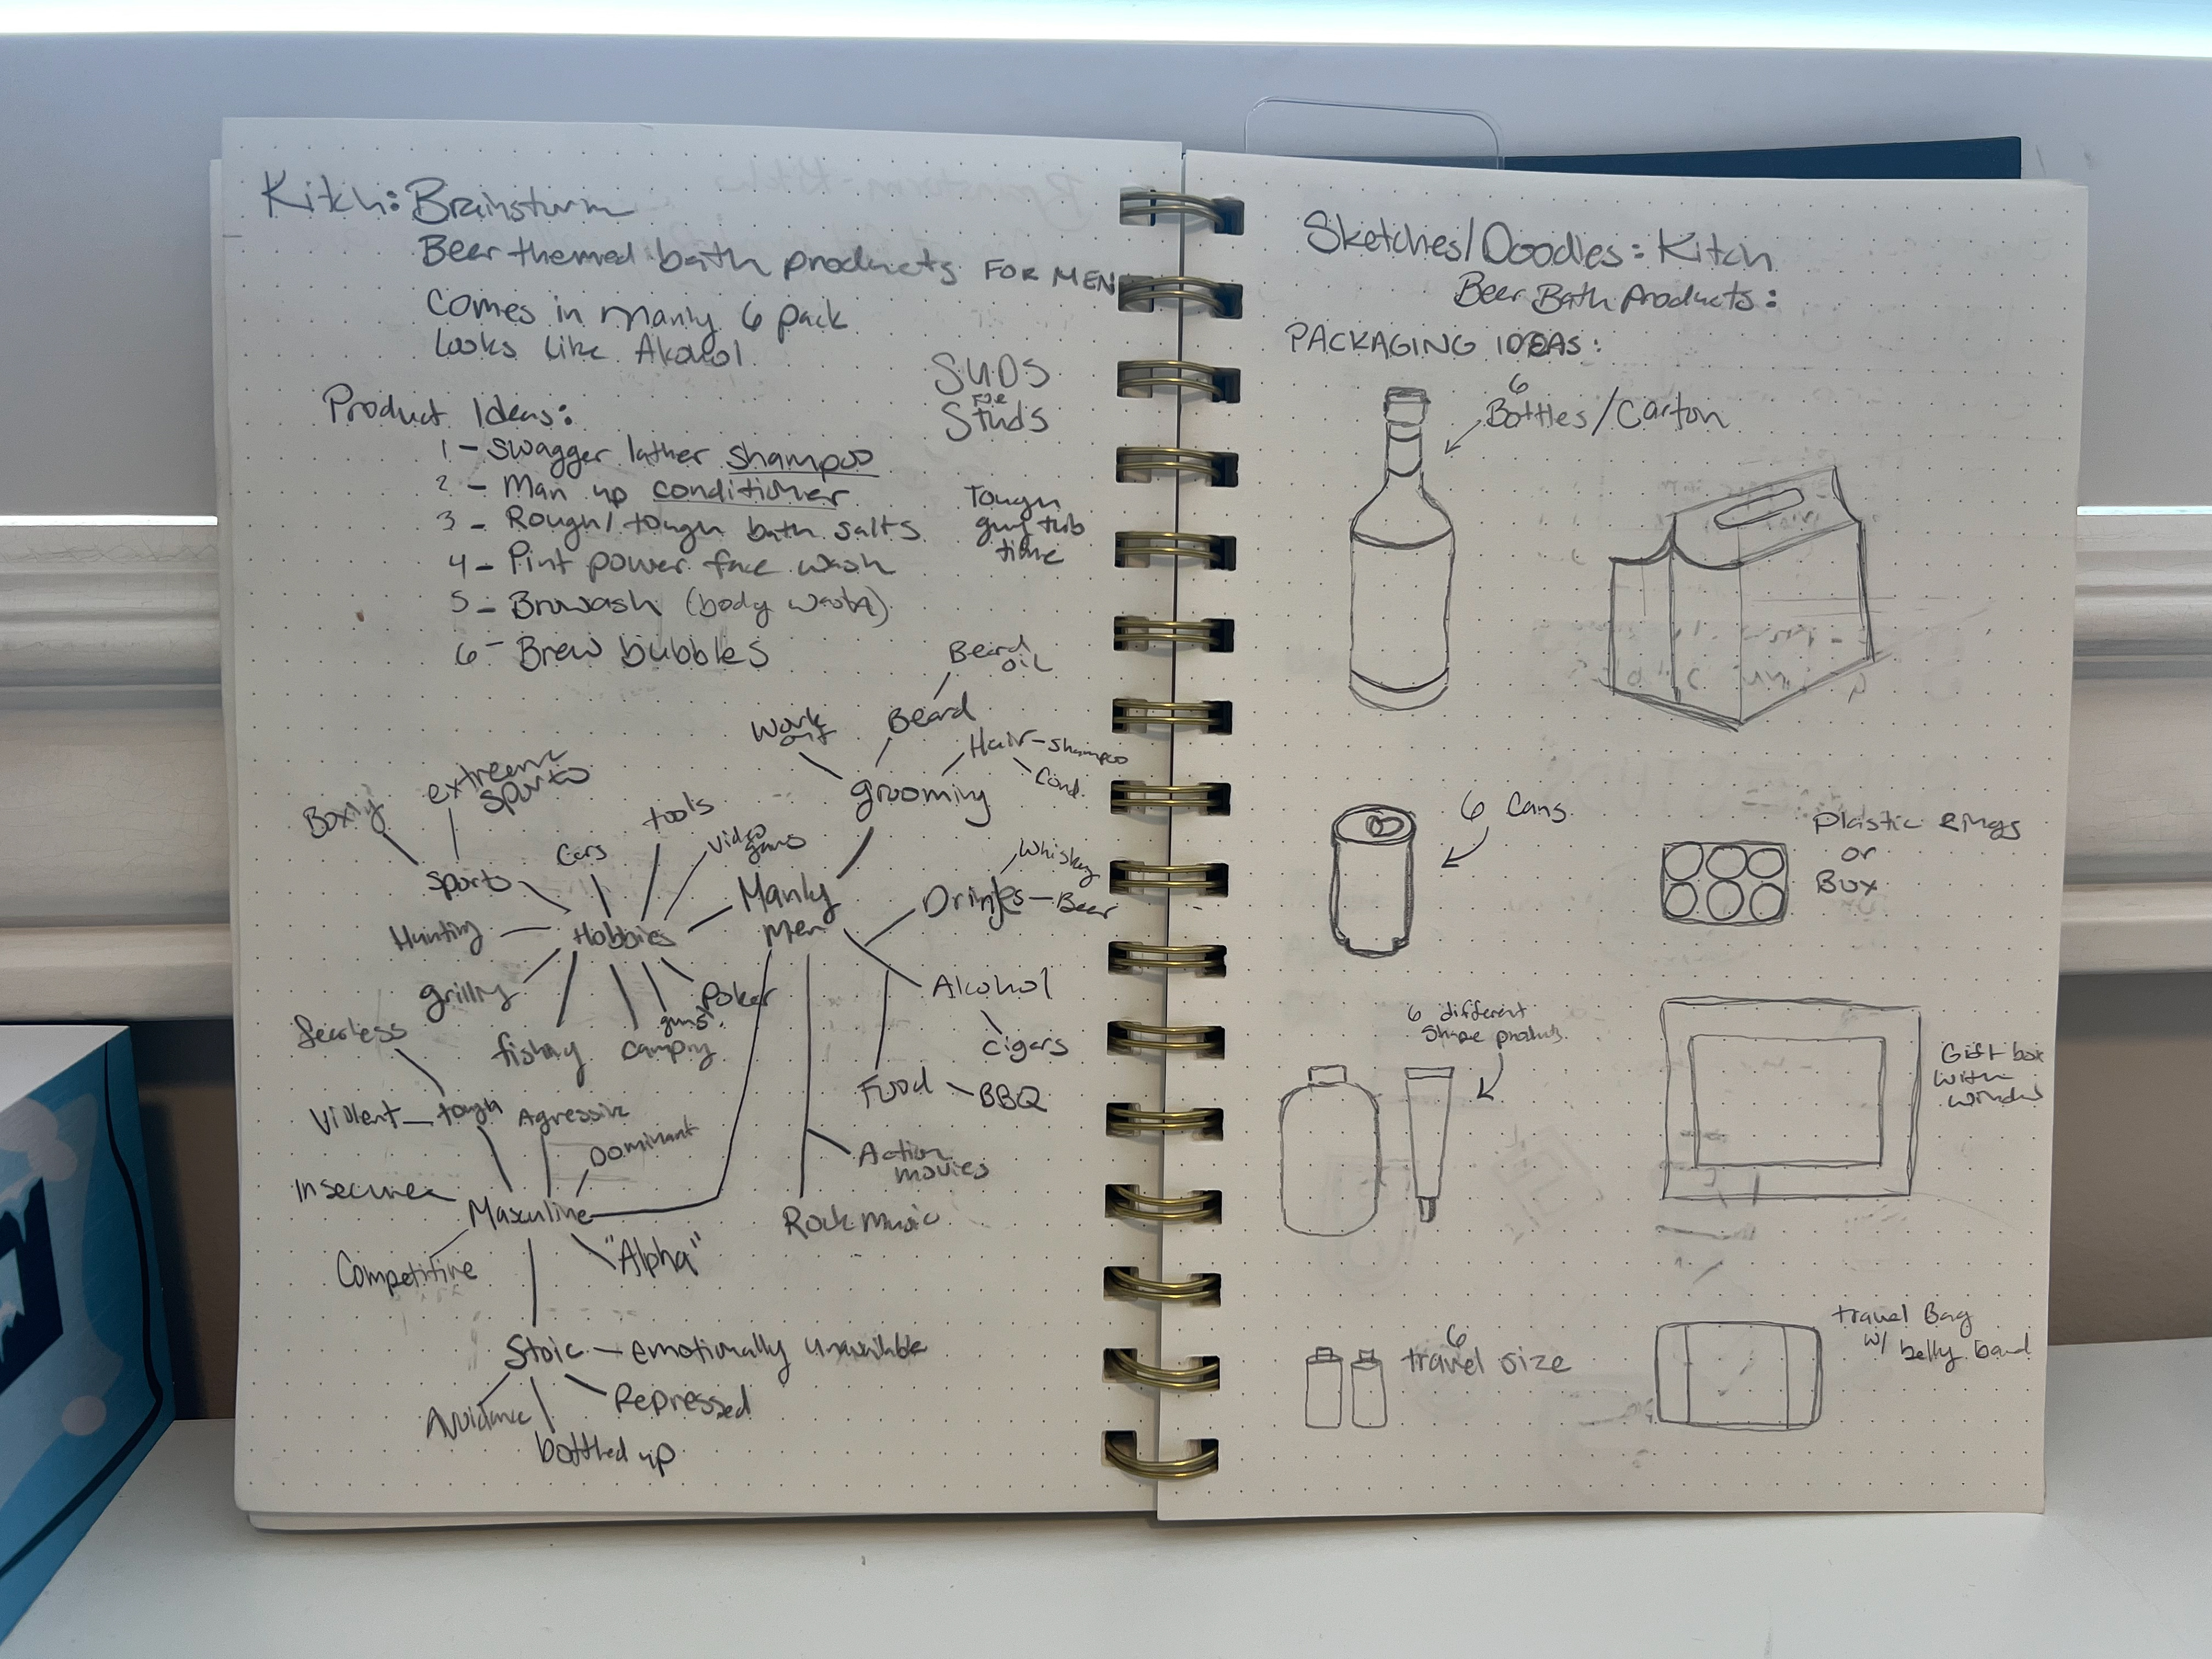 Kitch: Brainstorm
Beer themed bath products FOR MEN
Comes in manly 6 pack
looks like Alcohol
SUDS
FOR
Studs
Product Ideas:
1 - Swagger lather shampoo
2 - Man up conditioner
3 - Rough/tough bath salts
4 - Pint power face wash
5 - Browash (body wash)
6 - Brew bubbles
Tough
guy tub
time
Beard
oil
Work
out
Beard
Hair - shampoo
Cond.
grooming
extreeme
sports
Boxing
tools
Video
games
Cars
sports
Whiskey
Manly
men
Drinks - Beer
Hunting
Hobbies
grilling
Poker
guns
Alcohol
fearless
fishing
camping
cigars
Food - BBQ
Violent - tough
Agressive
Dominant
Action
movies
Insecure
Masculine
Rock music
Competitive
"Alpha"
Stoic - emotionally unavailable
Avoidance
Repressed
bottled up
Sketches/Doodles: Kitch
Beer Bath Products:
PACKAGING IDEAS:
6
Bottles/Carton
6 Cans
Plastic Rings
or
Box
6 different
Shape products
Gift box
with
window
6
travel size
travel Bag
w/ belly band